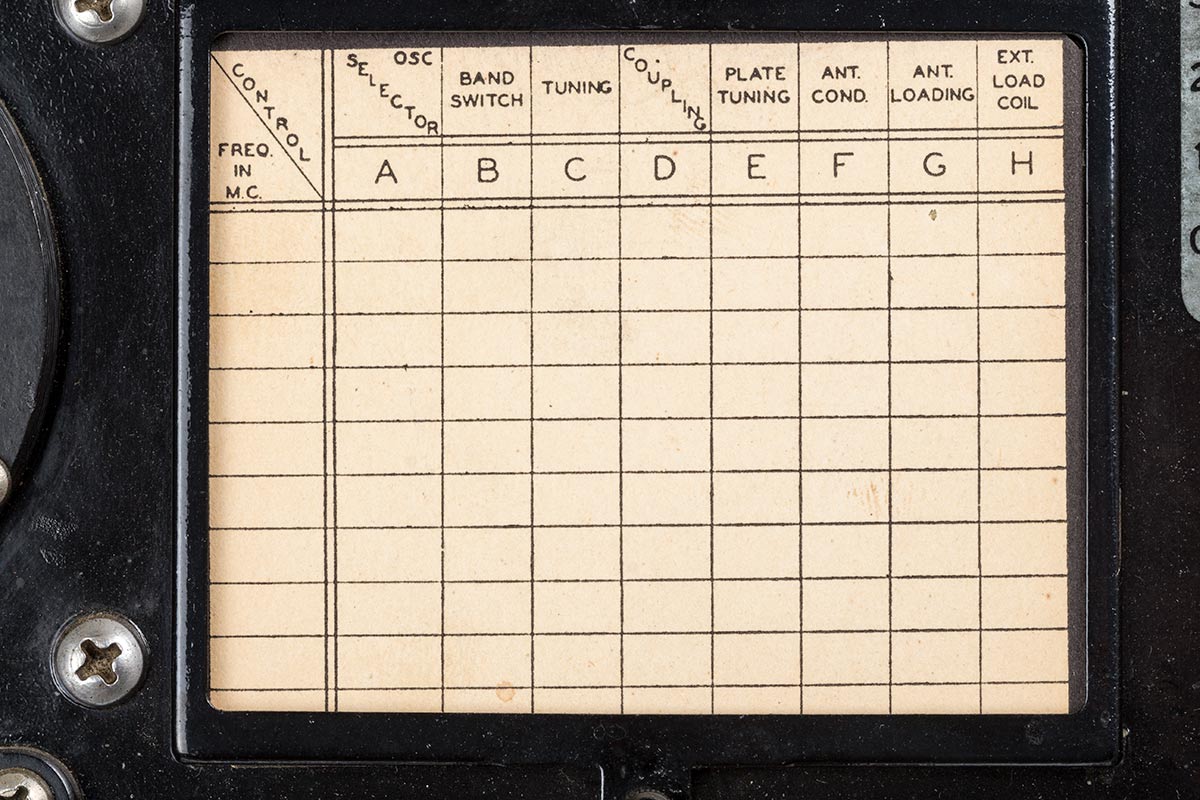 CONTROL
FREQ.
IN
M.C.
OSC
SELECTOR
BAND
SWITCH
TUNING
COUPLING
PLATE
TUNING
ANT.
COND.
ANT.
LOADING
EXT.
LOAD
COIL
A B C D E F G H